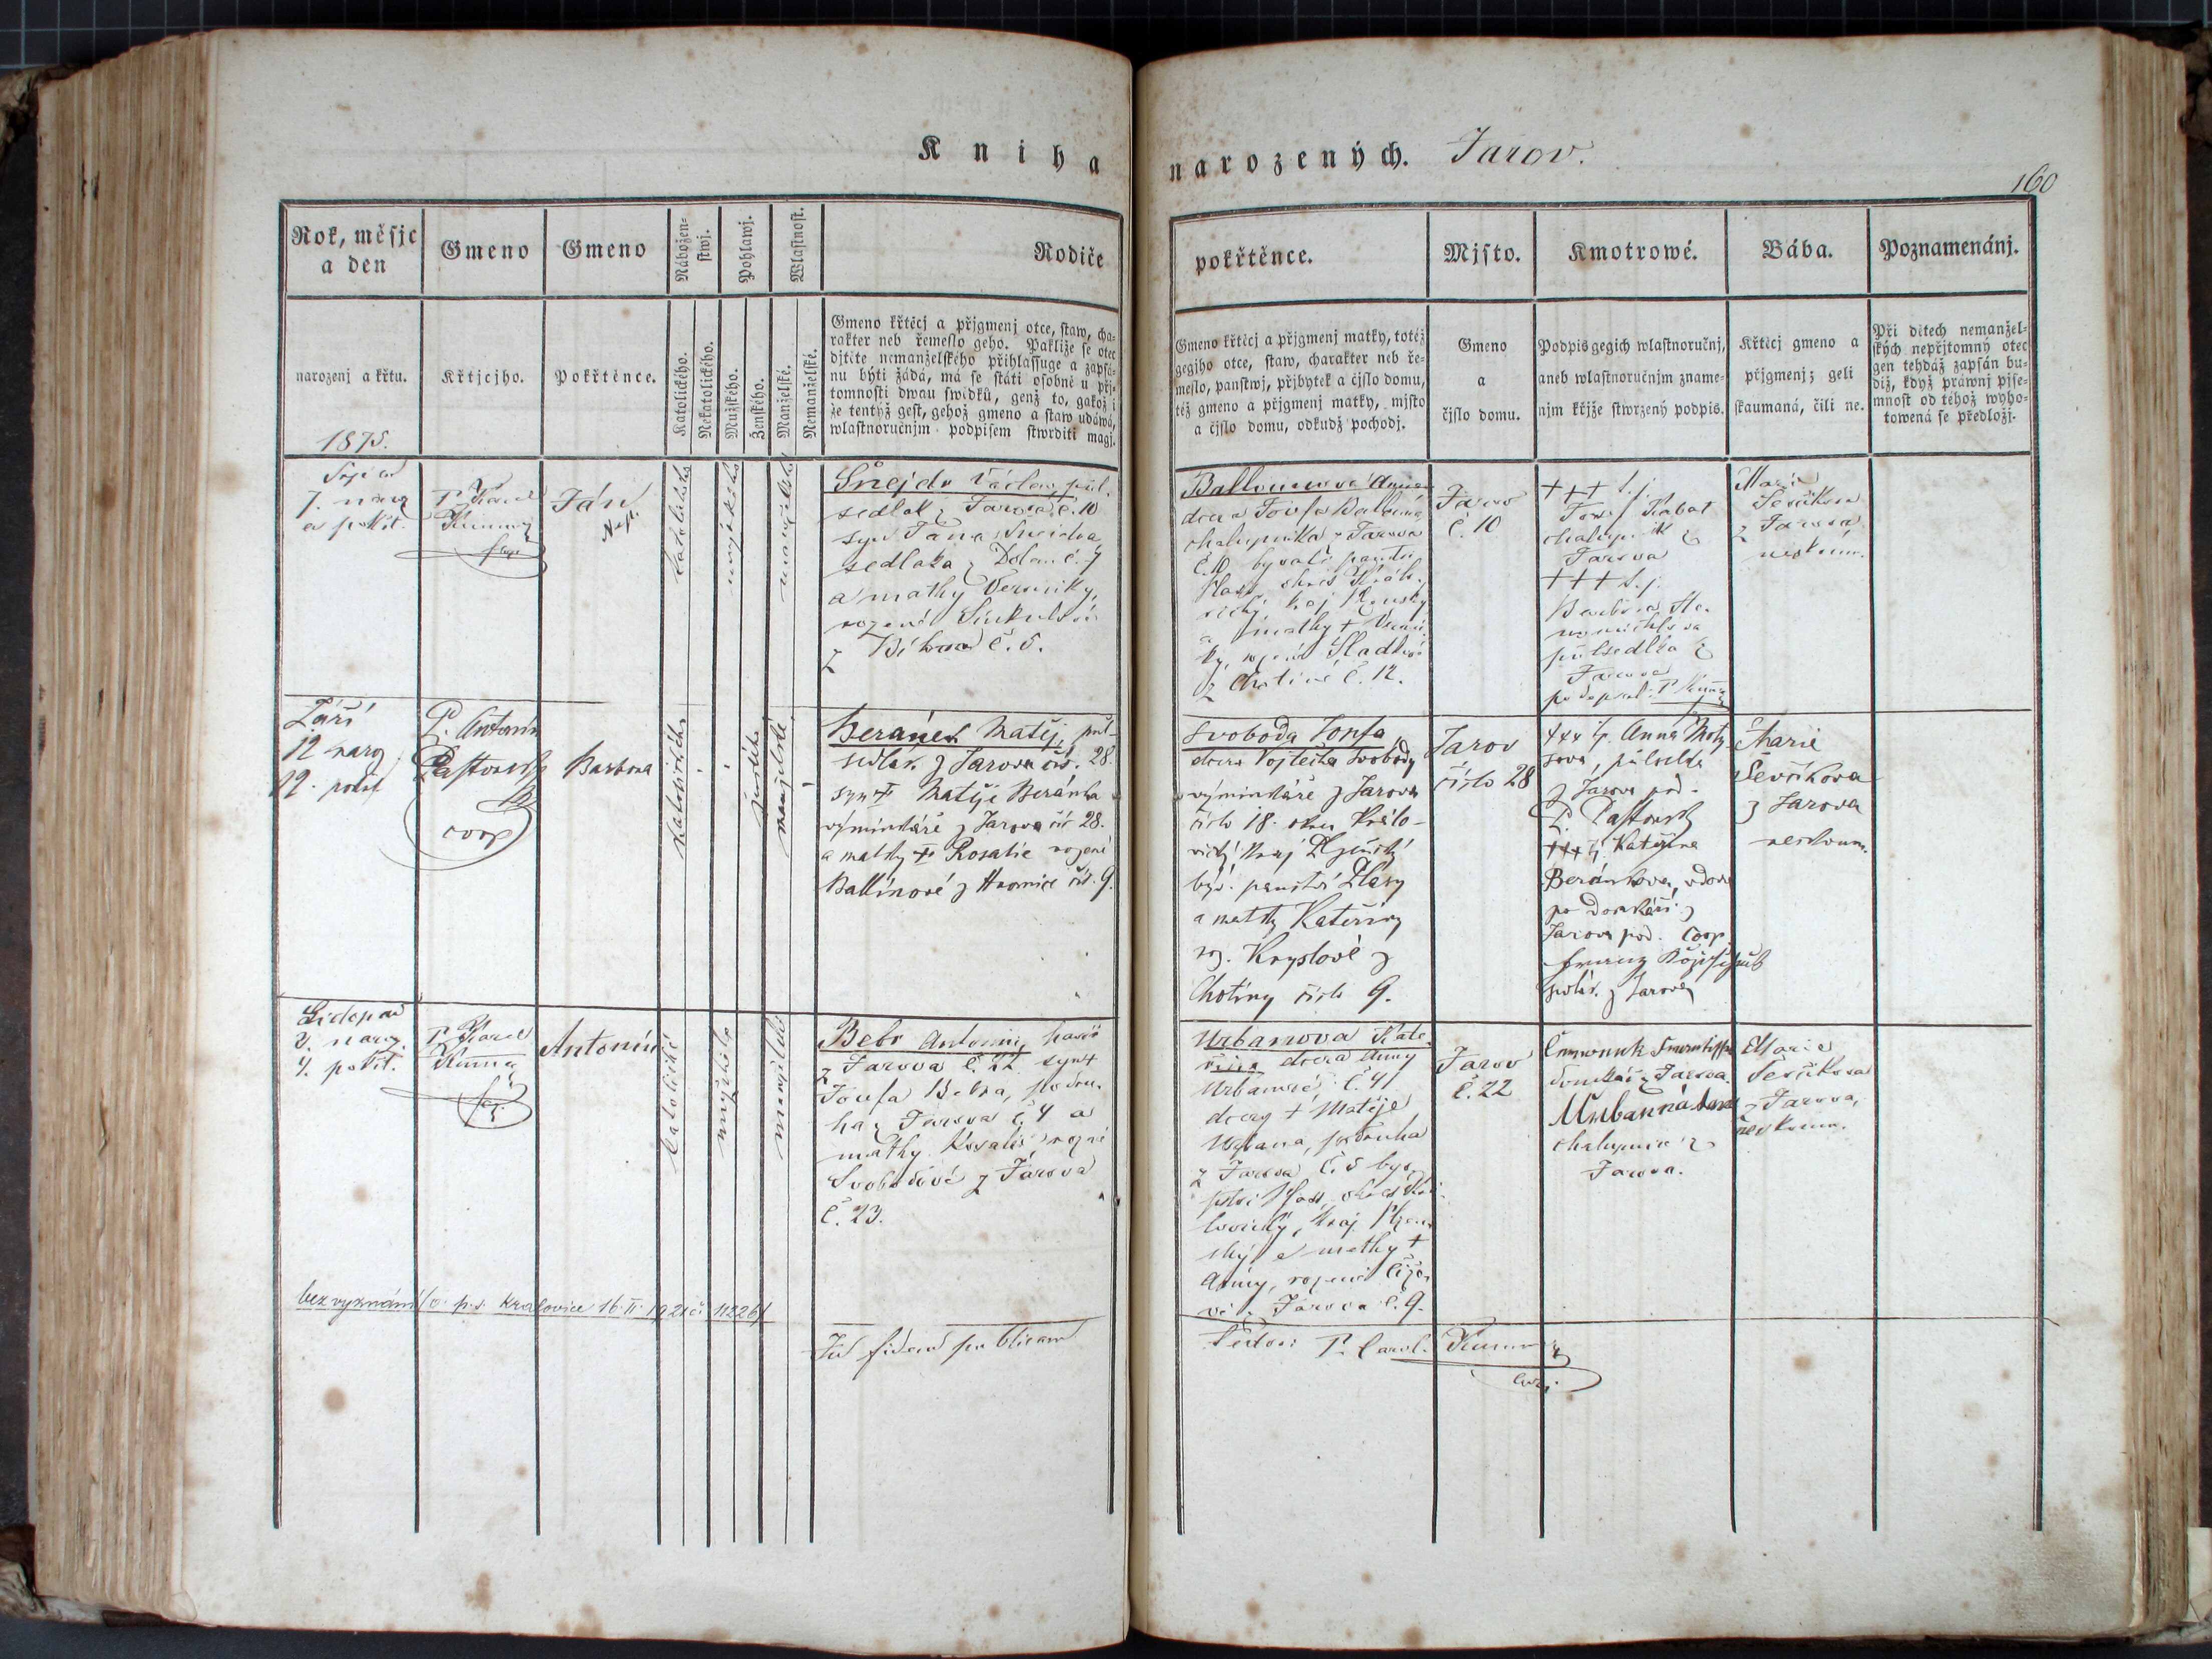 Kniha
narozených. Jarov.
160
Rok, měsjc
a den
Gmeno
Gmeno
Nábožen-
stwj.
Pohlawj.
Wlastnost.
Rodiče
narozenj a křtu.
Křtjcjho.
Pokřtěnce.
Katolického.
Nekatolického.
Mužského.
Ženského.
Manželské.
Nemanželské.
Gmeno křtěcj a přjgmenj otce, staw, cha-
rakter neb řemeslo geho. Pakliže se otec
djtěte nemanželského přihlassuge a zapsá-
nu býti žádá, má se státi osobně u přj-
tomnosti dwau swědků, genž to, gakož i
že tentýž gest, gehož gmeno a staw udáwá,
wlastnoručnjm podpisem stwrditi magj.
1875.
pokřtěnce.
Mjsto.
Kmotrowé.
Bába.
Poznamenánj.
Gmeno křtěcj a přjgmenj matky, totéž
gegjho otce, staw, charakter neb ře-
meslo, panstwj, přjbytek a čjslo domu,
též gmeno a přjgmenj matky, mjsto
a čjslo domu, odkudž pochodj.
Gmeno
a
čjslo domu.
Podpis gegich wlastnoručnj,
aneb wlastnoručnjm zname-
njm křjže stwrzený podpis.
Křtěcj gmeno a
přjgmenj; geli
skaumaná, čili ne.
Při dětech nemanžel-
ských nepřjtomný otec
gen tehdáž zapsán bu-
diž, když práwnj pjse-
mnost od téhož wyho-
towená se předložj.
7. naroz
a pokřt.
P. Karel
Jan
katolické
mužské
manželské
Šnejdr Václav, půl-
sedlák z Jarova č. 10
syn Jana Šneidra
sedláka z Dolan č. 7
a matky Veroniky,
rozené
z Bíkova č. 5.
dcera Josefa
chalupníka z Jarova
č. 10 bývalé panství
a matky +
z Chotiné č. 12.
Jarov
č. 10
+++
Josef Kabat
chalupník z
Jarova
+++
Barbora
půlsedlka z
Jarova
Marie
Ševčíkova
z Jarova
neskoum.
Září
12 naroz
12. pokřt
P. Antonín
Pastorský
coop
Barbora
katolické
ženské
manželské
Beránek Matěj, půl-
sedlák z Jarova čís. 28.
syn + Matěje Beránka
výminkáře z Jarova čís 28.
a matky + Rosalie rozené
Ballínové z Hromice čís. 9.
Svoboda Josefa,
dcera Vojtěcha Svobody
výminkáře z Jarova
číslo 18. okres Králo-
vický kraj Plzeňský
býv. panství Plasy
a matky Kateřiny
roz. Kryslové z
Chotiny číslo 9.
Jarov
číslo 28
+++ Anna
z Jarova pod.
P. Pastorský
+++ Kateřina
Beránkova, vdova
po domkáři z
Jarova pod. Coop.
z Jarova
Marie
Ševčíkova
z Jarova
neskoum.
Listopad
3. naroz.
4. pokřt.
P. Karel
Antonín
katolické
mužské
manželské
Bebr Antonín, havíř
z Jarova č. 22 syn +
Josefa Bebra, podru-
ha z Jarova č. 4 a
matky Rosalie rozené
Svobodové z Jarova
č. 23.
Urbanova Kate-
řina dcera Anny
Urbanové č. 41
dcery + Matěje
Urbana, podruha
z Jarova č. 5 býv.
panství Plasy, okres Krá-
lovický, kraj Plzeň-
ský a matky +
Anny, rozené
z Jarova č. 9.
Jarov
č. 22
domkář z Jarova.
chalupnice z
Jarova.
Marie
Ševčíkova
z Jarova,
neskoum.
bez vyznání (o. p. s. Kralovice 16. II. 1921 č. 11226)
In fidem publicam
P. Carol.